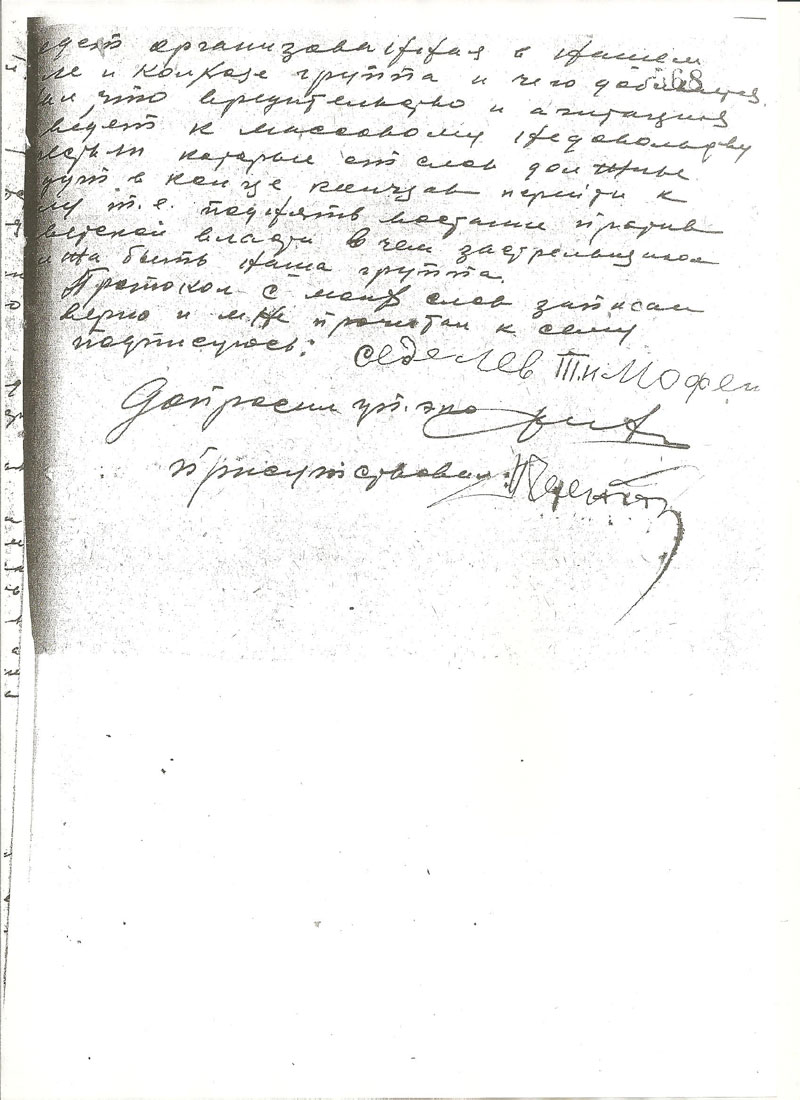 едет организованная в нашем
ле и колхозе группа и чего добивается
68
ли, что вредительство и агитация
ведет к массовому недовольству
которые от слов должны
дут в конце концов перейти к
лу т.е. поднять востание против
ветской власти в чем застрельщиком
лжна быть наша группа.
Протокол с моих слов записан
верно и мне прочитан к сему
подписуюсь: Седелев Тимофеи
Допросил уп. эко
Присутствовал: